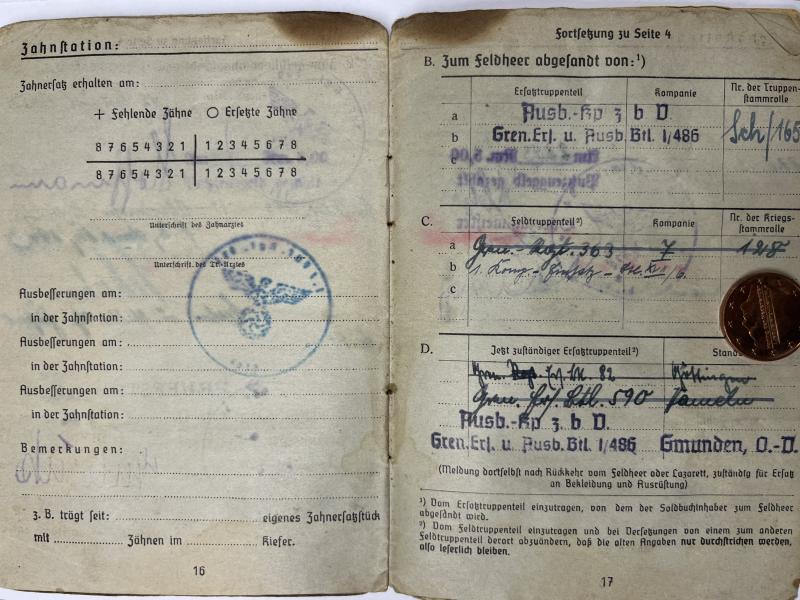 Zahnstation:
Zahnersatz erhalten am:
+ Fehlende Zähne O Ersetzte Zähne
8 7 6 5 4 3 2 1 | 1 2 3 4 5 6 7 8
8 7 6 5 4 3 2 1 | 1 2 3 4 5 6 7 8
Unterschrift des Zahnarztes
Unterschrift des Tr.-Arztes
Ausbesserungen am:
in der Zahnstation:
Ausbesserungen am:
in der Zahnstation:
Ausbesserungen am:
in der Zahnstation:
Bemerkungen:
z. B. trägt seit: eigenes Zahnersatzstück
mit Zähnen im Kiefer.
16
Fortsetzung zu Seite 4
B. Zum Feldheer abgesandt von:¹)
Ersatztruppenteil Kompanie Nr. der Truppen-
stammrolle
a Ausb.-Kp z b V
b Gren.Ers. u. Ausb. Btl. I/486 Sch/165
c
C. Feldtruppenteil²) Kompanie Nr. der Kriegs-
stammrolle
a Gren.-Rgt. 363 7 128
b 1.
c
D. Jetzt zuständiger Ersatztruppenteil²) Stand
82 Göttingen
Gren. Ers. Btl. 590 Hameln
Ausb.-Kp z. b V.
Gren.Ers. u. Ausb. Btl. I/486 Gmunden, O.-D.
(Meldung dortselbst nach Rückkehr vom Feldheer oder Lazarett, zuständig für Ersatz
an Bekleidung und Ausrüstung)
¹) Vom Ersatztruppenteil einzutragen, von dem der Soldbuchinhaber zum Feldheer
abgesandt wird.
²) Vom Feldtruppenteil einzutragen und bei Versetzungen von einem zum anderen
Feldtruppenteil derart abzuändern, daß die alten Angaben nur durchstrichen werden,
also leserlich bleiben.
17